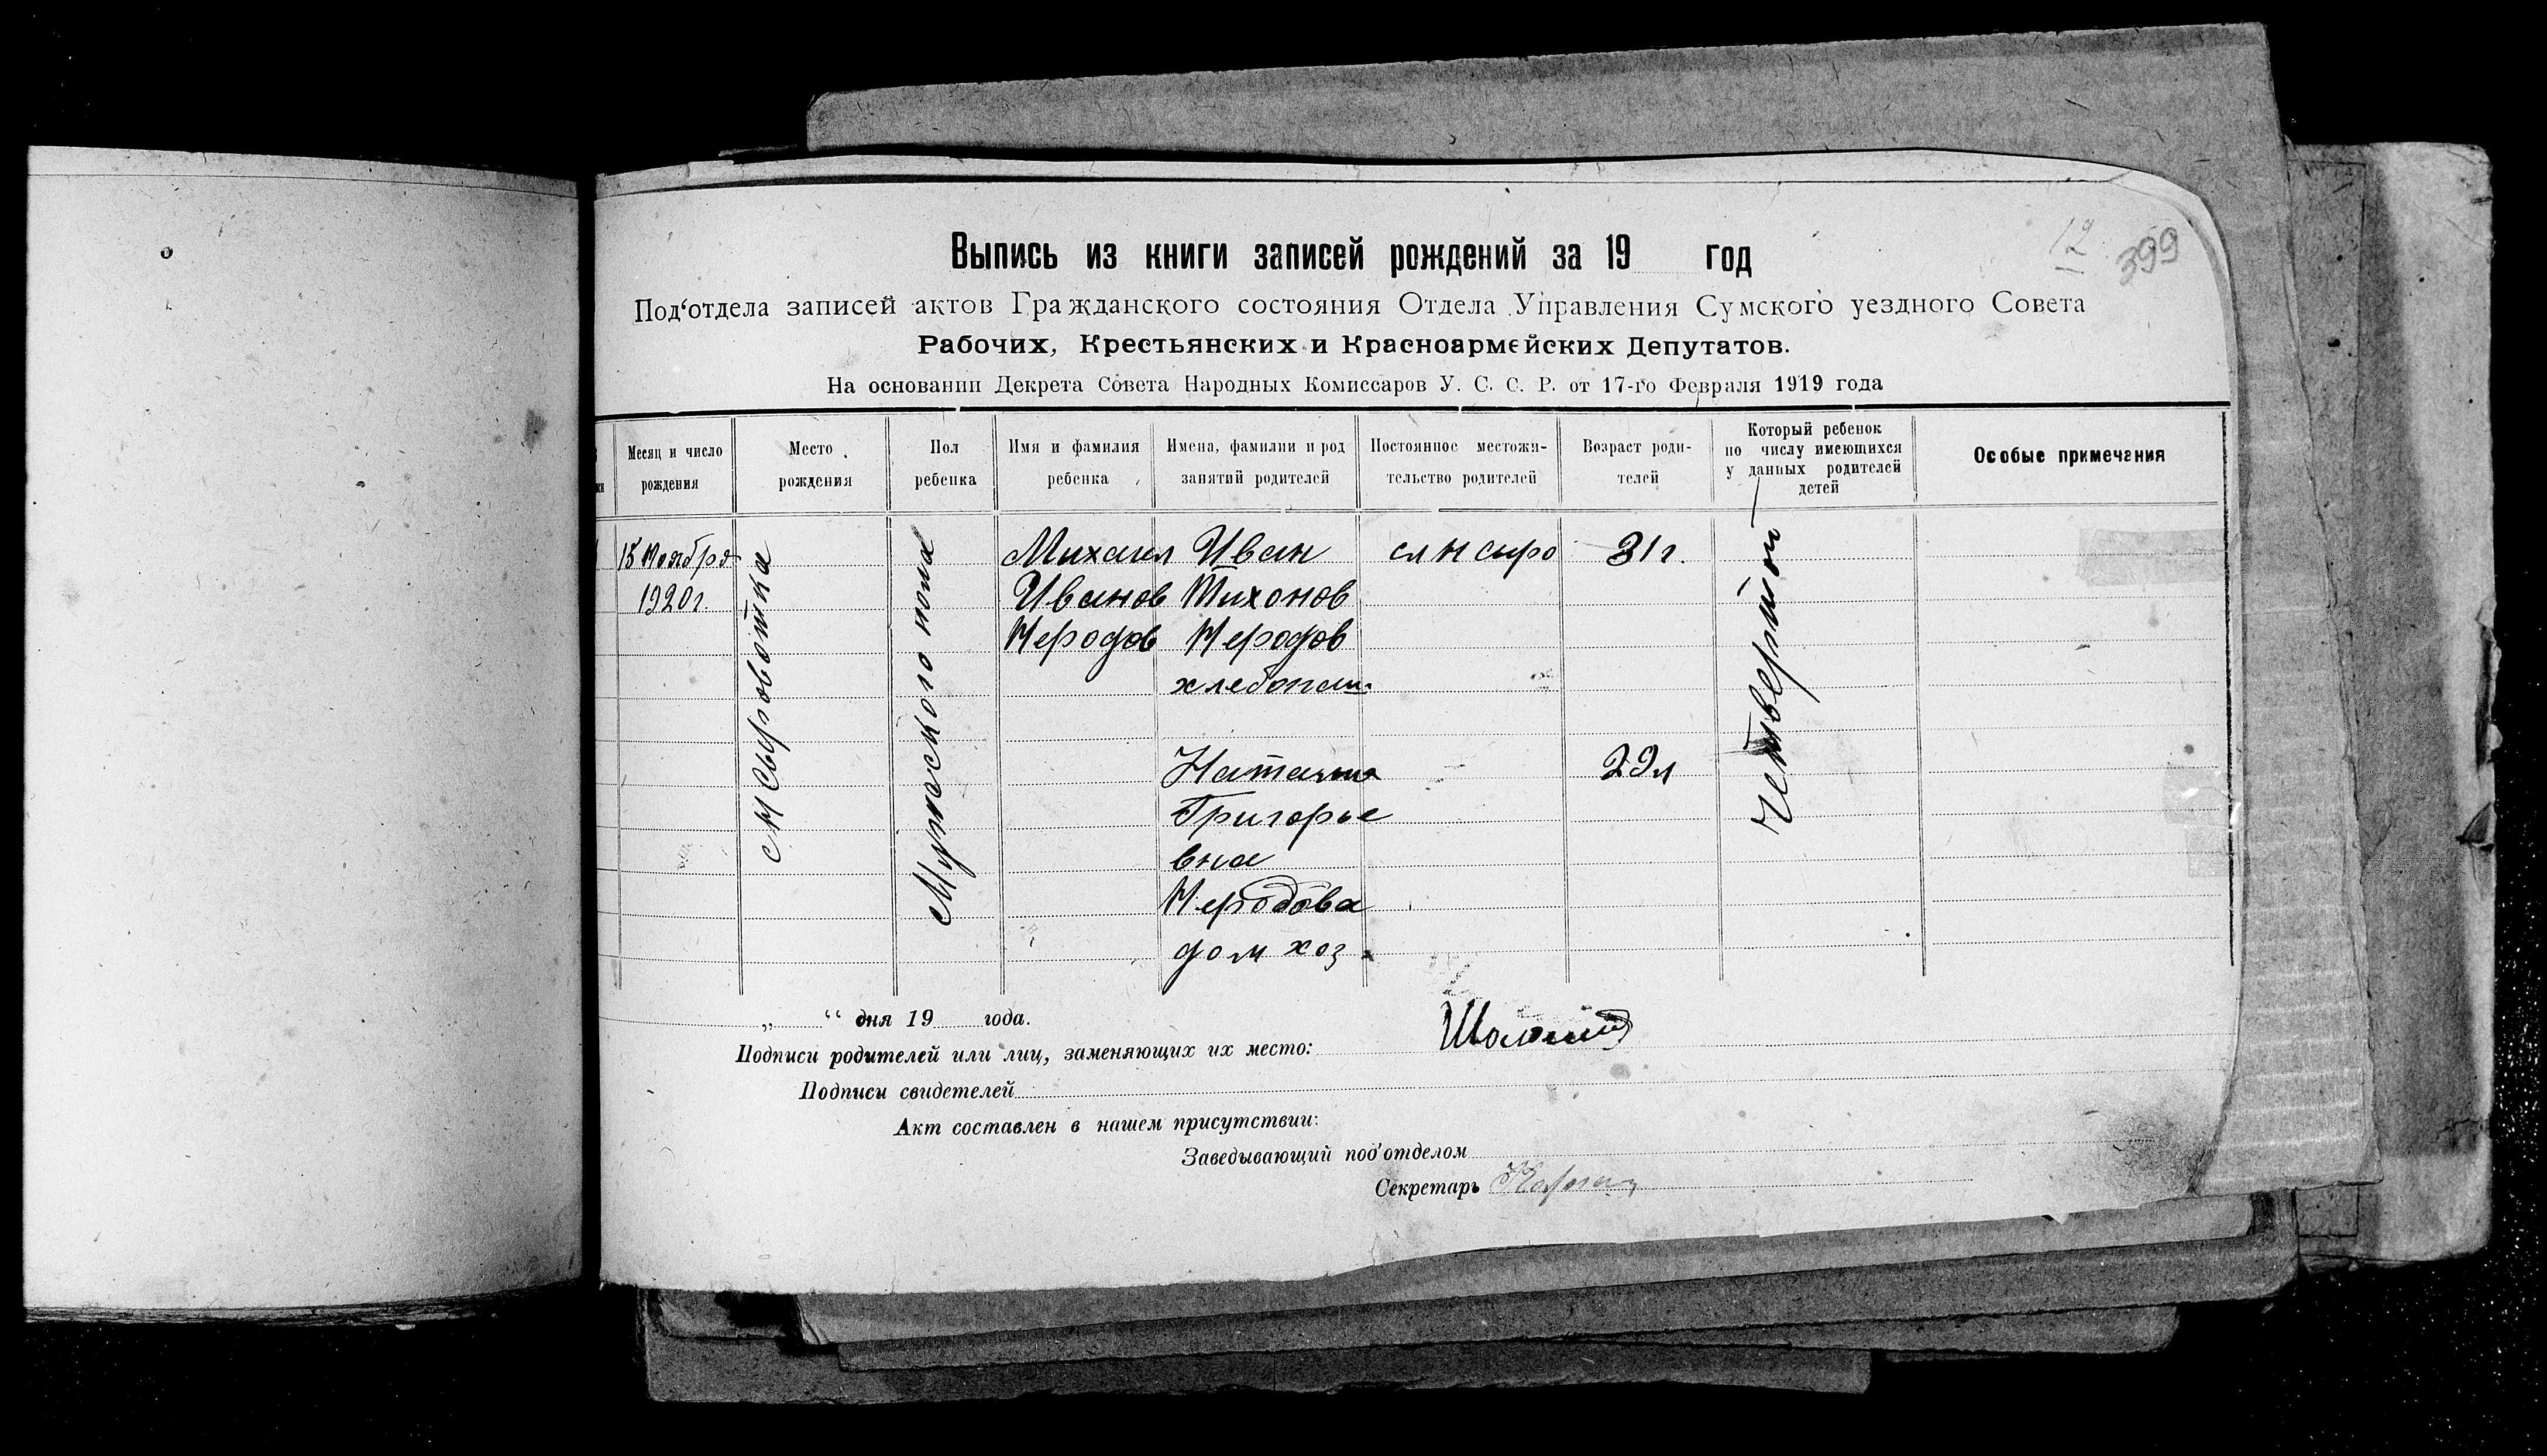 12
399
Выпись из книги записей рождений за 19 год
Под‘отдела записей актов Гражданского состояния Отдела Управления Сумского уездного Совета
Рабочих, Крестьянских и Красноармейских Депутатов.
На основании Декрета Совета Народных Комиссаров У. С. С. Р. от 17-го Февраля 1919 года
Месяц и число
рождения
Место
рождения
Пол
ребенка
Имя и фамилия
ребенка
Имена, фамилии и род
занятий родителей
Постоянное местожи-
тельство родителей
Возраст роди-
телей
Который ребенок
по числу имеющихся
у данных родителей
детей
Особые примечания
15 Ноября
1920 г.
Н Сыроватка
Мужского пола
Михаил
Иванов
Неродов
Иван
Тихонов
Неродов
хлебопаш.
Наталия
Григорье
вна
Неродова
дом хоз.
сл Н Сыро
31 г.
29 л
Четвертой
„ “ дня 19 года.
Подписи родителей или лиц, заменяющих их место:
Подписи свидетелей
Акт составлен в нашем присутствии:
Заведывающий под‘отделом
Секретарь